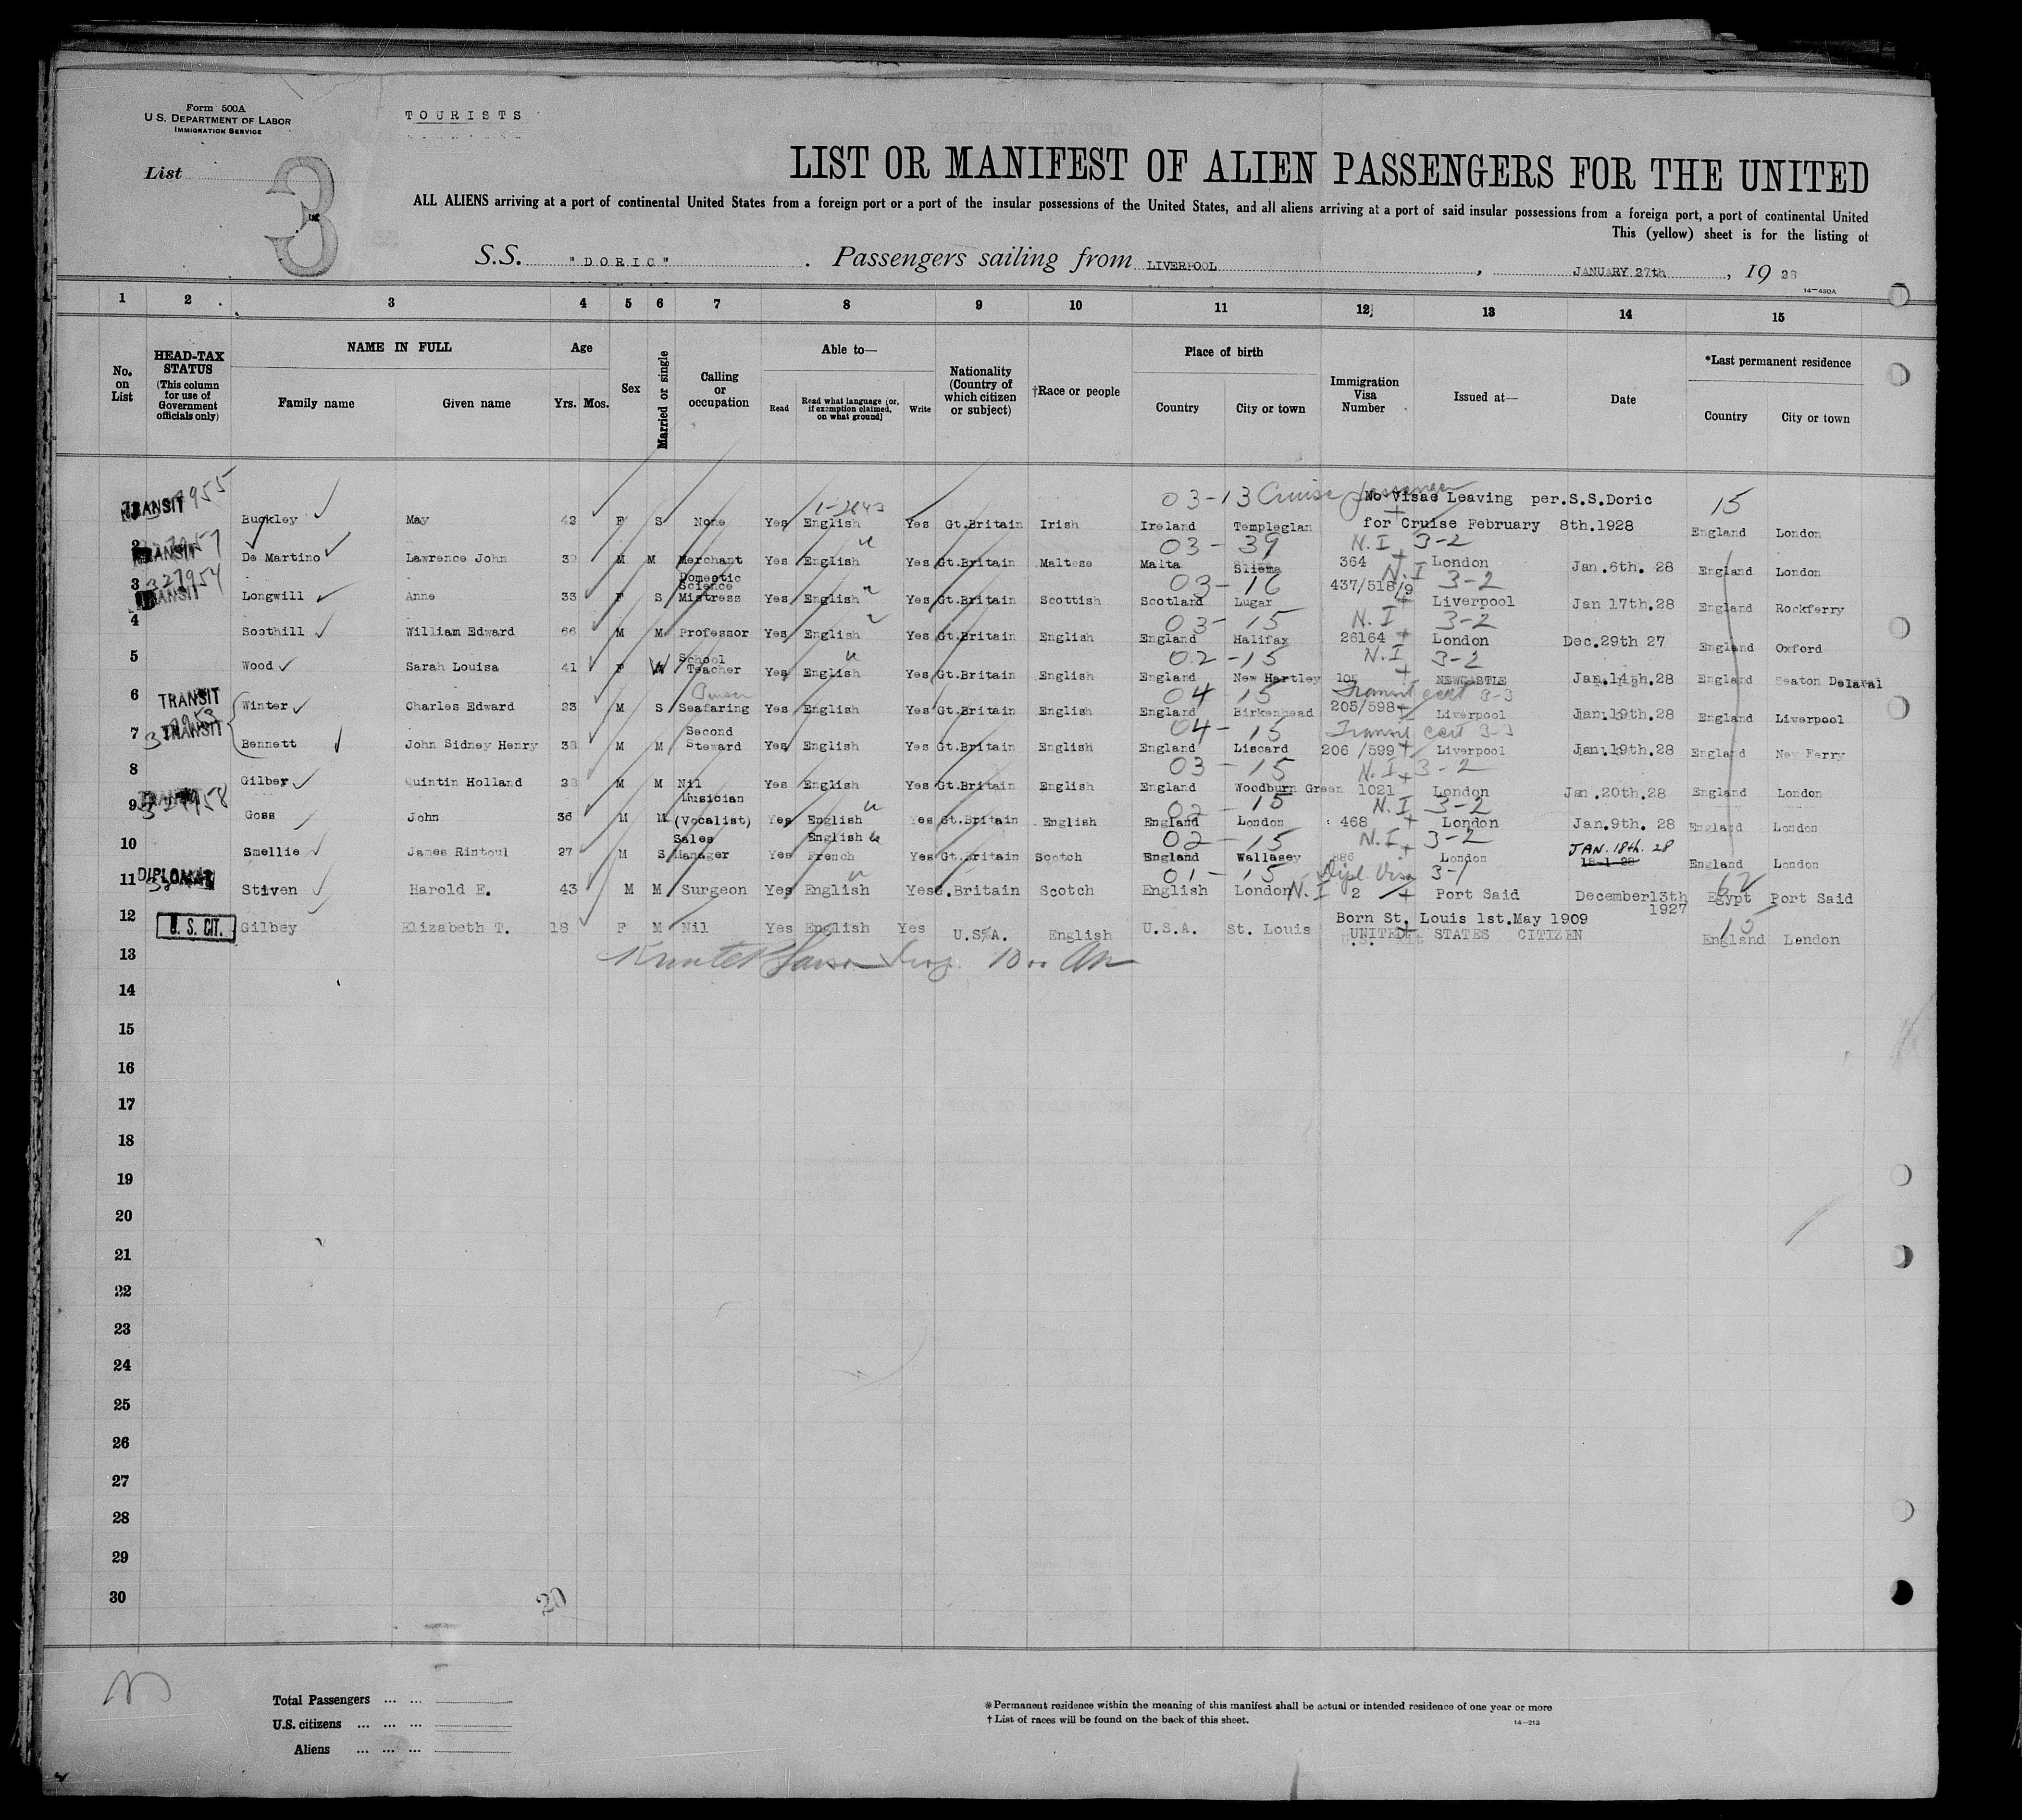 Form 500A
U. S. DEPARTMENT OF LABOR
IMMIGRATION SERVICE
TOURISTS
List
3
LIST OR MANIFEST OF ALIEN PASSENGERS FOR THE UNITED
ALL ALIENS arriving at a port of continental United States from a foreign port or a port of the insular possessions of the United States, and all aliens arriving at a port of said insular possessions from a foreign port, a port of continental United
This (yellow) sheet is for the listing of
S.S. "DORIC" . Passengers sailing from LIVERPOOL , JANUARY 27th , 19 28
14—430A
1 2 3 4 5 6 7 8 9 10 11 12 13 14 15
No. on List
HEAD-TAX STATUS (This column for use of Government officials only)
NAME IN FULL
Family name Given name
Age
Yrs. Mos.
Sex
Married or single
Calling or occupation
Able to—
Read Read what language (or, if exemption claimed, on what ground) Write
Nationality (Country of which citizen or subject)
†Race or people
Place of birth
Country City or town
Immigration Visa Number
Issued at—
Date
*Last permanent residence
Country City or town
1-2843 03-13 Cruise passenger No Visae Leaving per.S.S.Doric 15
TRANSIT Buckley May 42 F S None Yes English Yes Gt.Britain Irish Ireland Templeglan for Cruise February 8th.1928 England London
03-39 N.I 3-2
2 TRANSIT De Martino Lawrence John M M Merchant Yes English Yes Gt.Britain Maltese Malta Sliema 364 London Jan.6th. 28 England London
327954 03-16 N.I 3-2
3 TRANSIT Longwill Anne 33 F S Domestic Science Mistress Yes English Yes Gt.Britain Scottish Scotland Lugar 437/518/9 Liverpool Jan 17th.28 England Rockferry
03-15 N.I 3-2
4 Soothill William Edward 66 M M Professor Yes English Yes Gt.Britain English England Halifax 26164 London Dec.29th 27 England Oxford
02-15 N.I 3-2
5 Wood Sarah Louisa 41 F W School Teacher Yes English Yes Gt.Britain English England New Hartley NEWCASTLE Jan.14th.28 England Seaton Delaval
04-15 Transit cert 3-3
6 TRANSIT Winter Charles Edward 23 M S Seafaring Yes English Yes Gt.Britain English England Birkenhead 205/598 Liverpool Jan.19th.28 England Liverpool
04-15 Transit cert 3-3
7 TRANSIT Bennett John Sidney Henry 38 M M Second Steward Yes English Yes Gt.Britain English England Liscard 206 /599 Liverpool Jan.19th.28 England New Ferry
03-15 N.I 3-2
8 Gilbey Quintin Holland M M Nil Yes English Yes Gt.Britain English England Woodburn Green 1021 London Jan.20th.28 England London
02-15 N.I 3-2
9 Goss John 36 M M Musician (Vocalist) Yes English Yes Gt.Britain English England London 468 London Jan.9th. 28 England London
02-15 N.I 3-2
10 Smellie James Rintoul 27 M S Sales Manager Yes English French Yes Gt.Britain Scotch England Wallasey London JAN.18th.28 18-1-28 England London
01-15 Dipl. Visa 3-1 62
11 DIPLOMAT Stiven Harold E. 43 M M Surgeon Yes English Yes G.Britain Scotch English London N.I 2 Port Said December13th 1927 Egypt Port Said
Born St. Louis 1st.May 1909 15
12 U. S. CIT. Gilbey Elizabeth T. 18 F M Nil Yes English Yes U.S.A. English U.S.A. St. Louis UNITED STATES CITIZEN England London
13
14
15
16
17
18
19
20
21
22
23
24
25
26
27
28
29
30
20
Total Passengers ... ...
U.S. citizens ... ... ...
Aliens ... ... ...
*Permanent residence within the meaning of this manifest shall be actual or intended residence of one year or more
† List of races will be found on the back of this sheet.
14—213